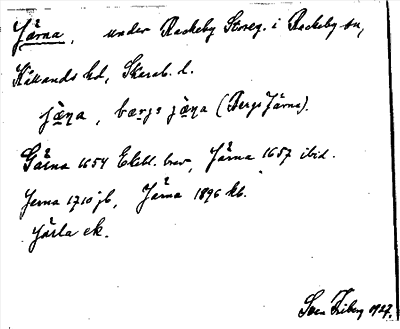 Järna, under Rackeby Storeg. i Rackeby sn,
Kållands hd, Skarab. l.
jä̀ṇa, bærgs jä̀ṇa (Bergs Järna).
Gärna 1654 Ekebl. brev, Järna 1657 ibid.
Jerna 1710 jb, Järna 1896 kb.
Järla ek.
Sven Friberg 1927.